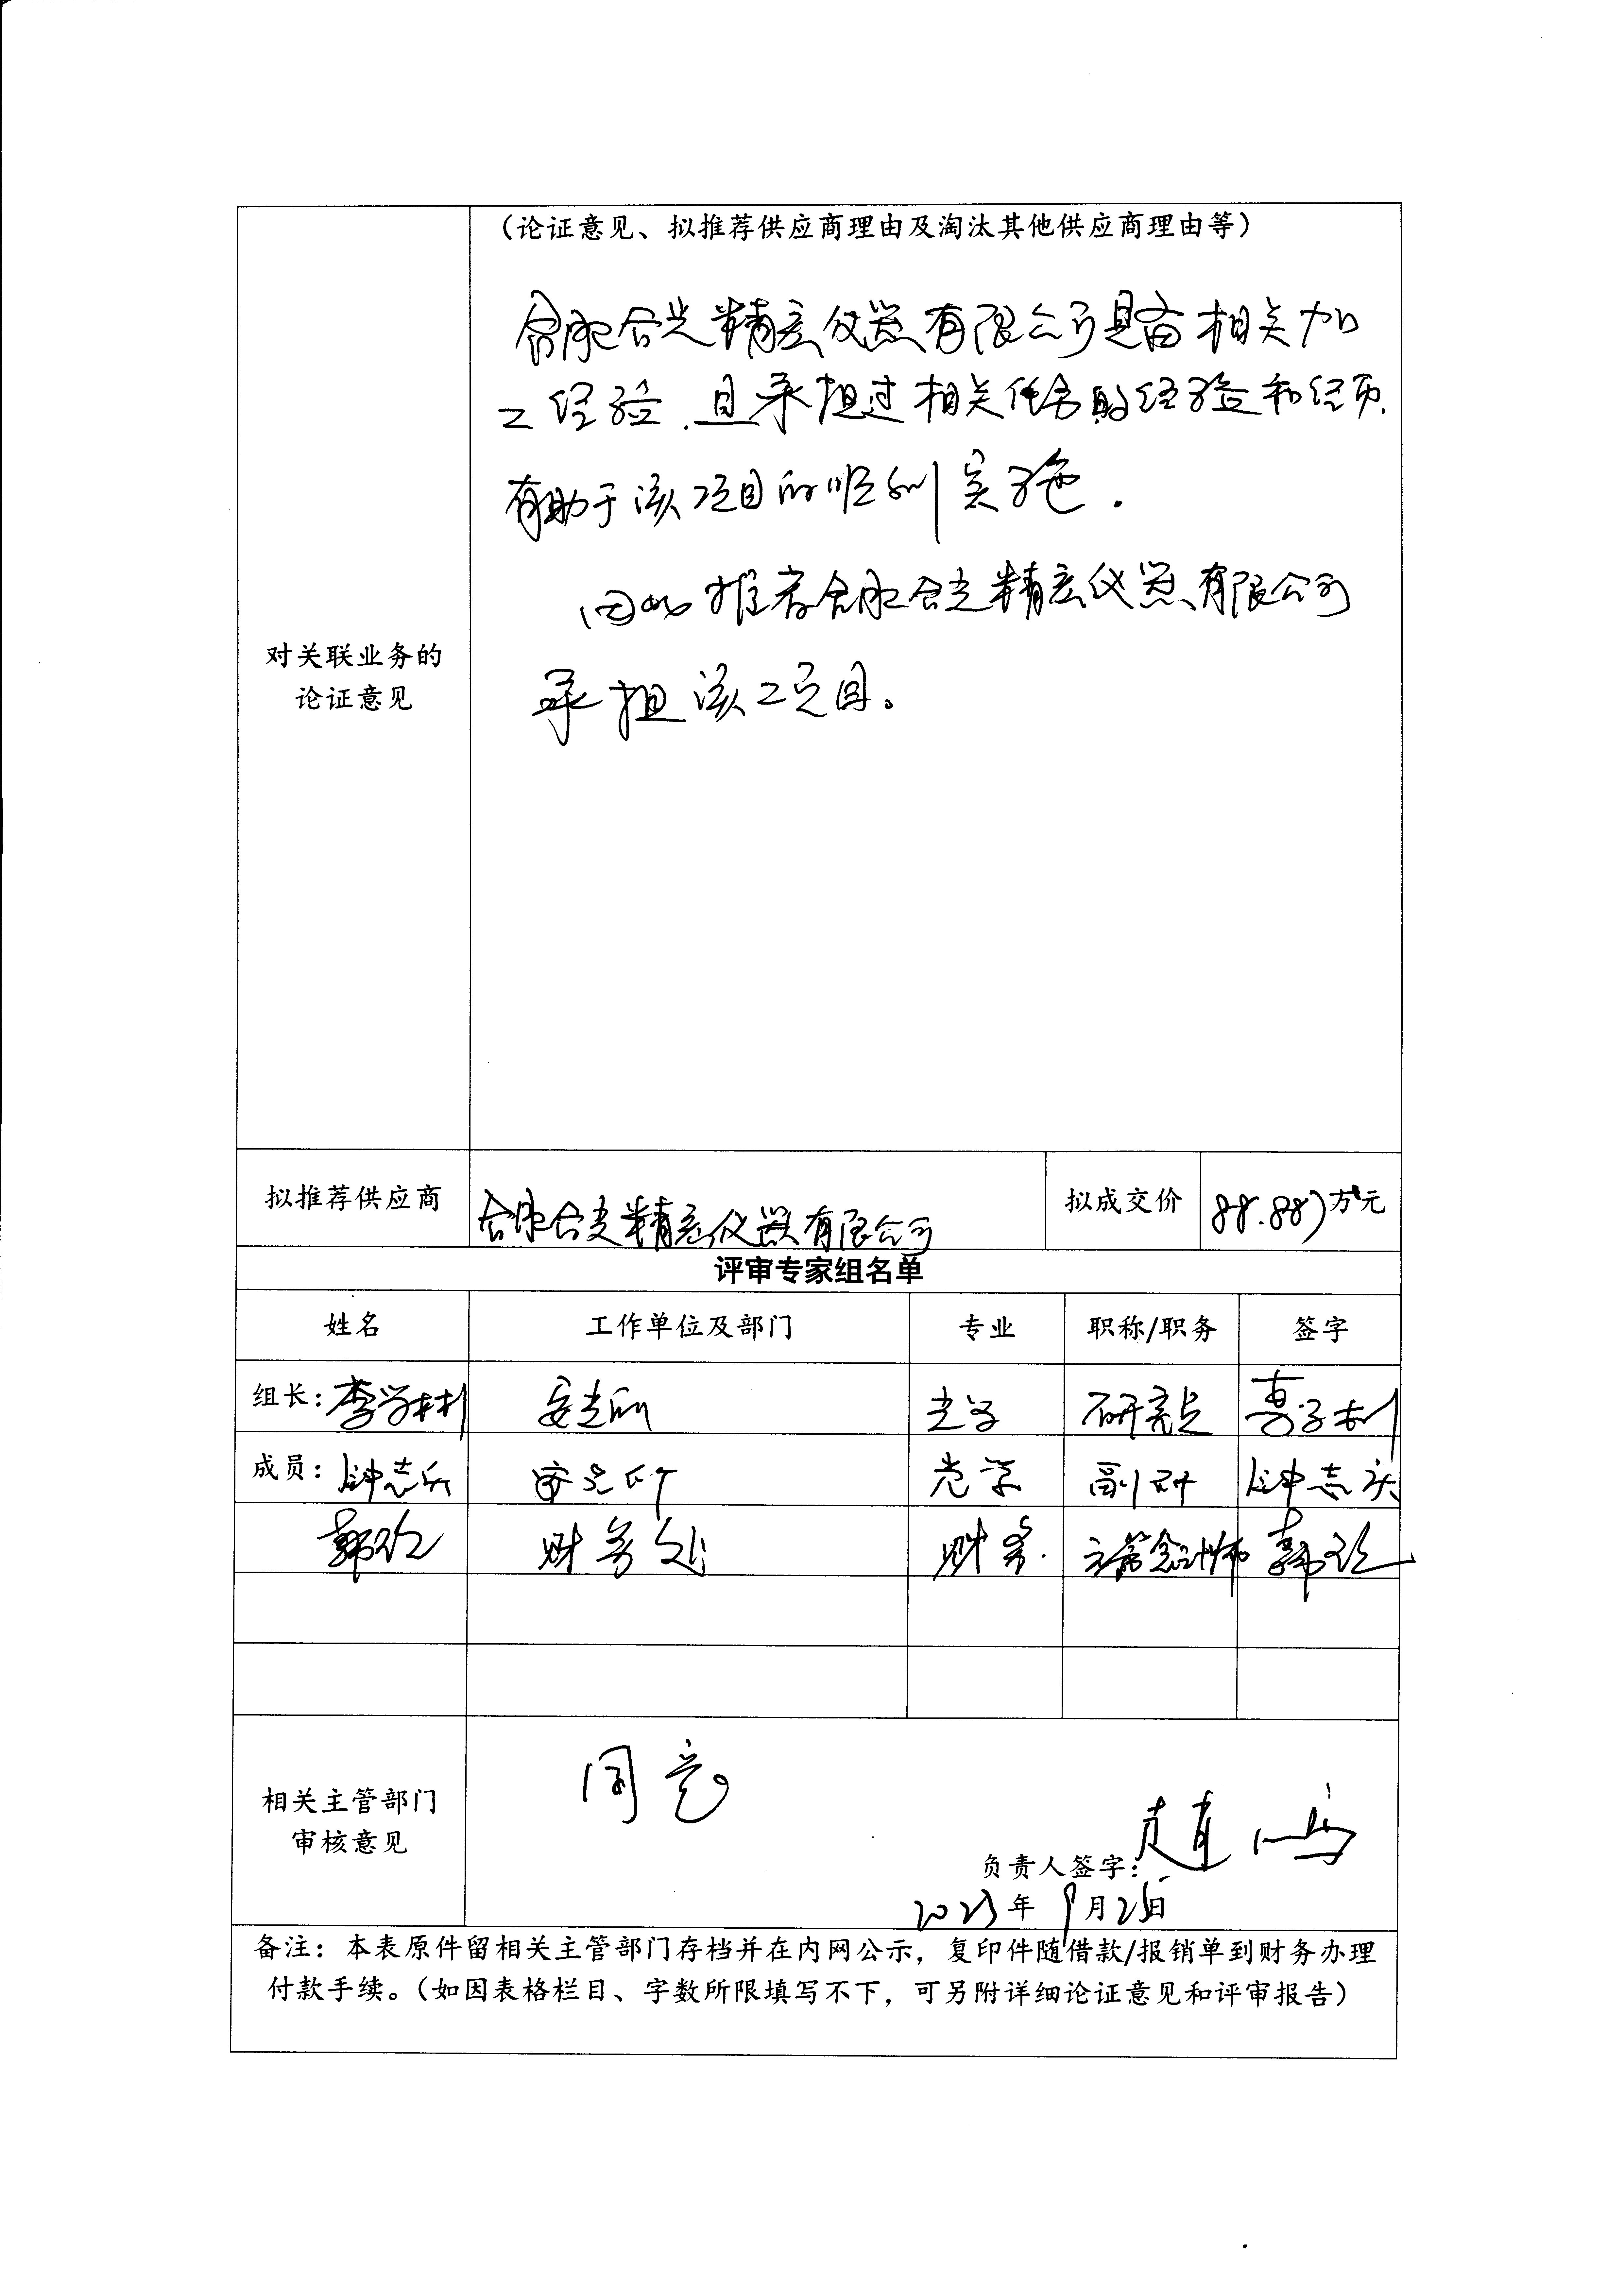 （论证意见、拟推荐供应商理由及淘汰其他供应商理由等）
合肥合光精密仪器有限公司具备相关加
工经验，且承担过相关任务的经验和经历，
有助于该项目的顺利实施。
因此推荐合肥合光精密仪器有限公司
承担该项目。
对关联业务的
论证意见
拟推荐供应商 合肥合光精密仪器有限公司 拟成交价 88.887万元
评审专家组名单
姓名 工作单位及部门 专业 职称/职务 签字
组长：李学彬 安光所 光学 研究员 李学彬
成员：钟志庆 安光所 光学 副研 钟志庆
财务处 财务 主管会计师
同意
相关主管部门
审核意见
负责人签字：
2023年9月25日
备注：本表原件留相关主管部门存档并在内网公示，复印件随借款/报销单到财务办理
付款手续。（如因表格栏目、字数所限填写不下，可另附详细论证意见和评审报告）